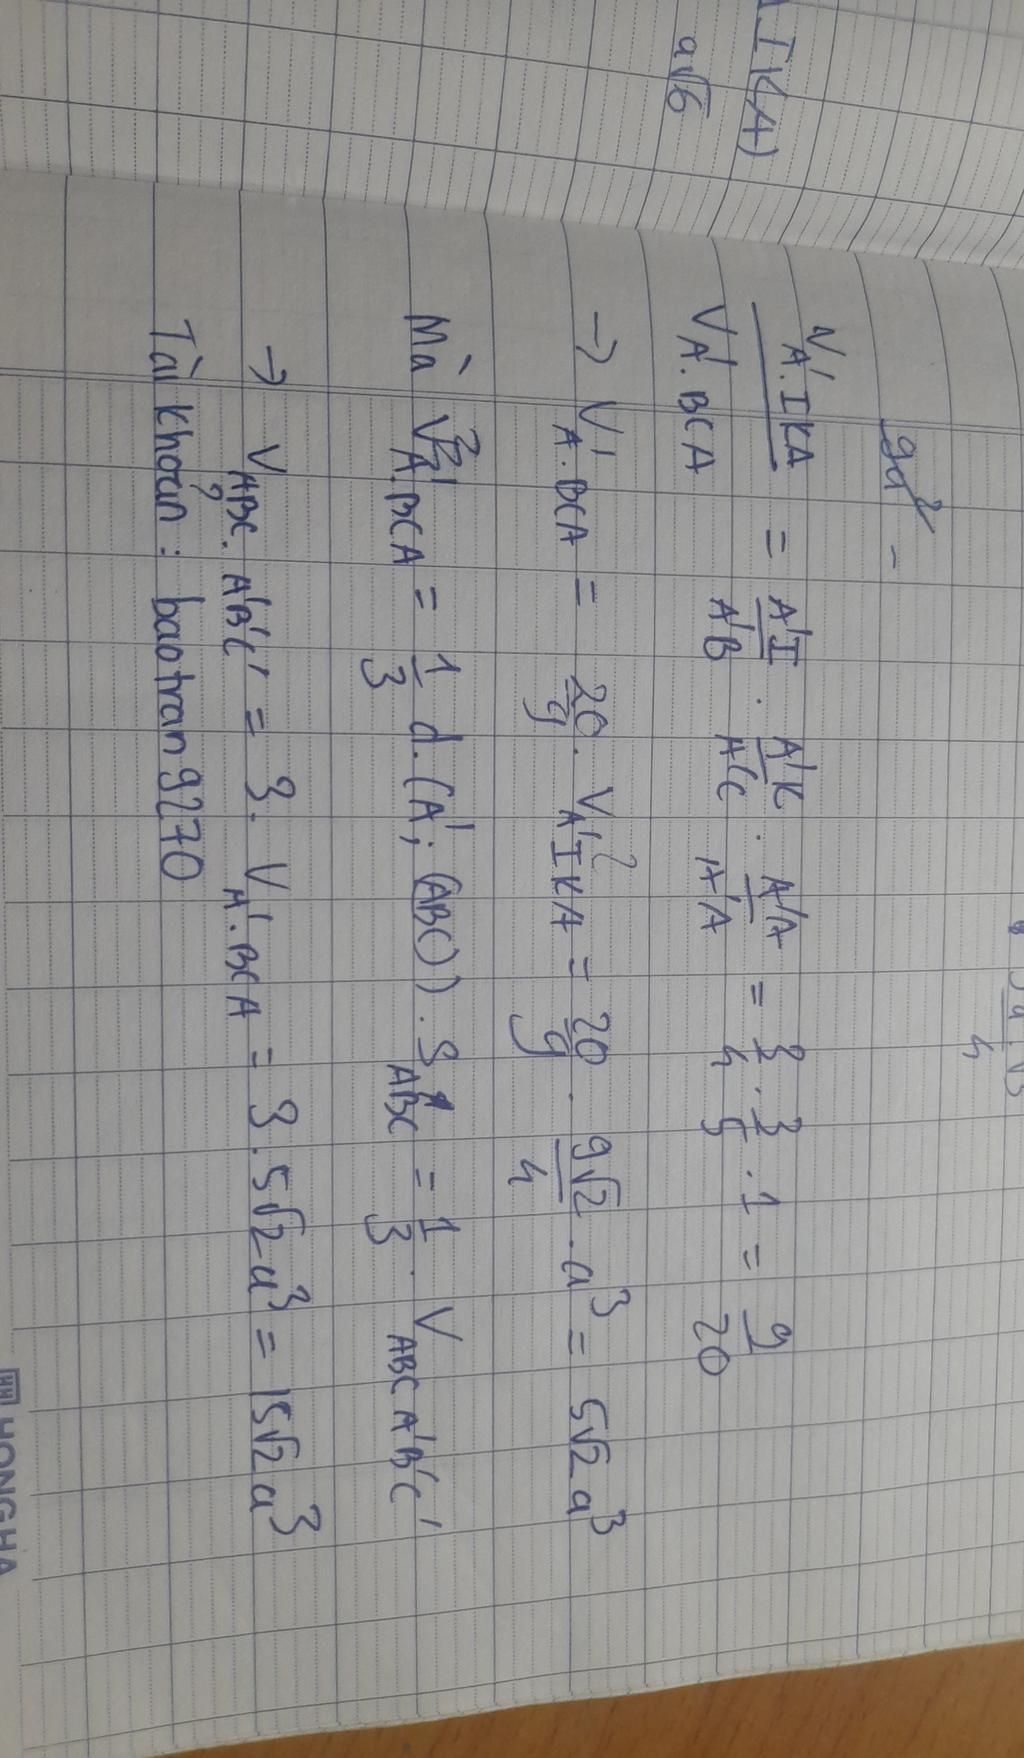 IKA)
a√6
9a²
V A'.IKA / V A'.BCA = A'I/A'B . A'K/A'C . A'A/A'A = 3/4 . 3/5 . 1 = 9/20
→ V A'.BCA = 20/9 . V A'IKA = 20/9 . 9√2/4 . a³ = 5√2a³
Mà V A'.BCA = 1/3 d.(A'; (ABC)) . S ABC = 1/3 . V ABC A'B'C'
→ V ABC. A'B'C' = 3. V A'.BCA = 3. 5√2a³ = 15√2a³
Tài khoản : baotran9270
HONGHA